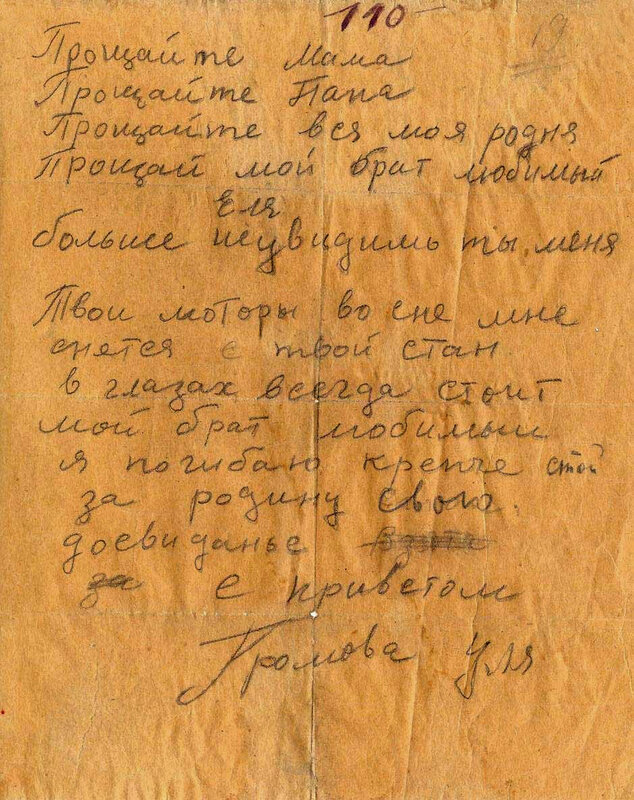 110
19
Прощайте Мама
Прощайте Папа
Прощайте вся моя родня
Прощай мой брат любимый
Еля
больше неувидишь ты меня
Твои моторы во сне мне
снется с твой стан
в глазах всегда стоит
мой брат любимый
я погибаю крепче стой
за родину свою.
досвиданье
за
С приветом
Громова Уля